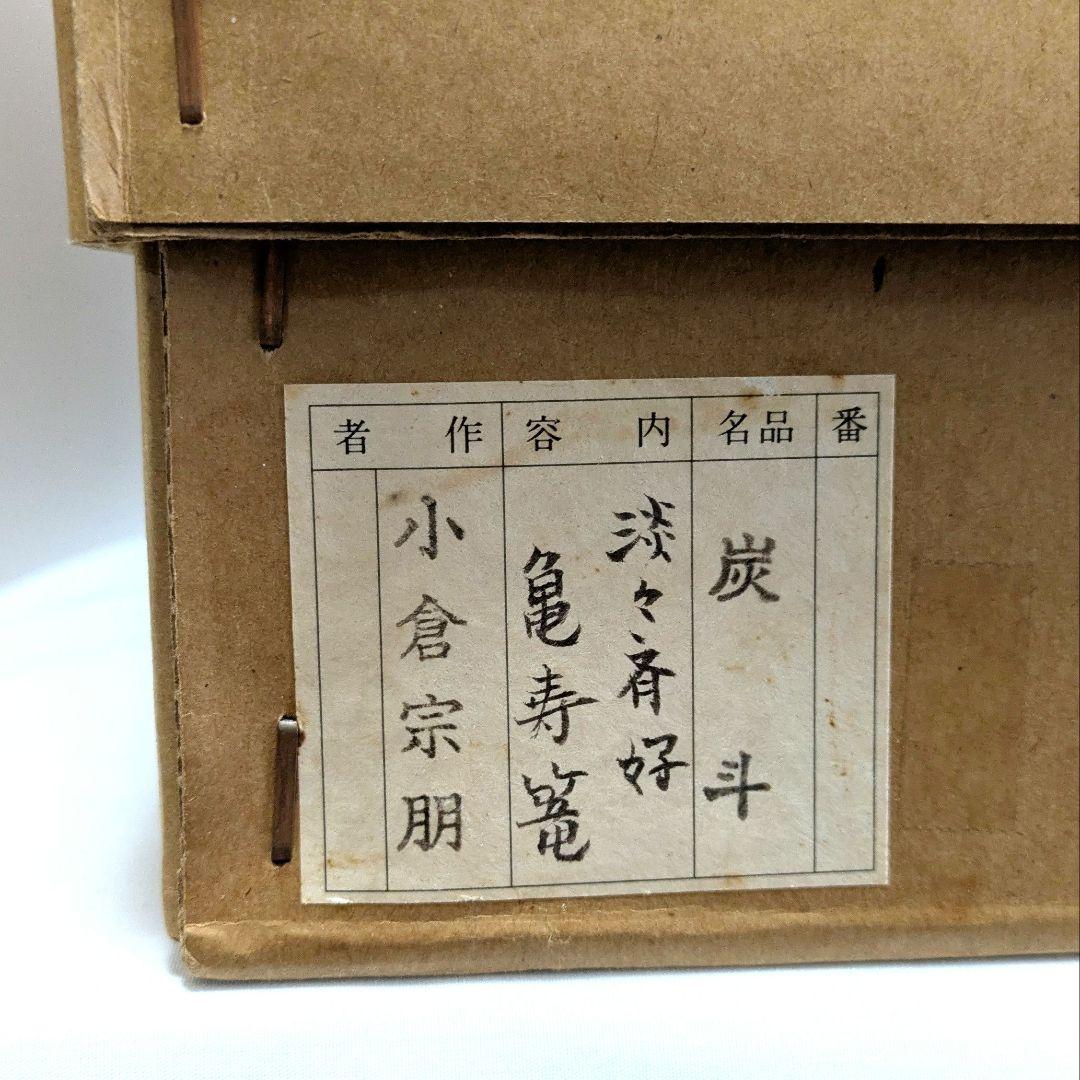 番
品名
炭斗
内容
淡々斉好
亀寿篭
作者
小倉宗朋